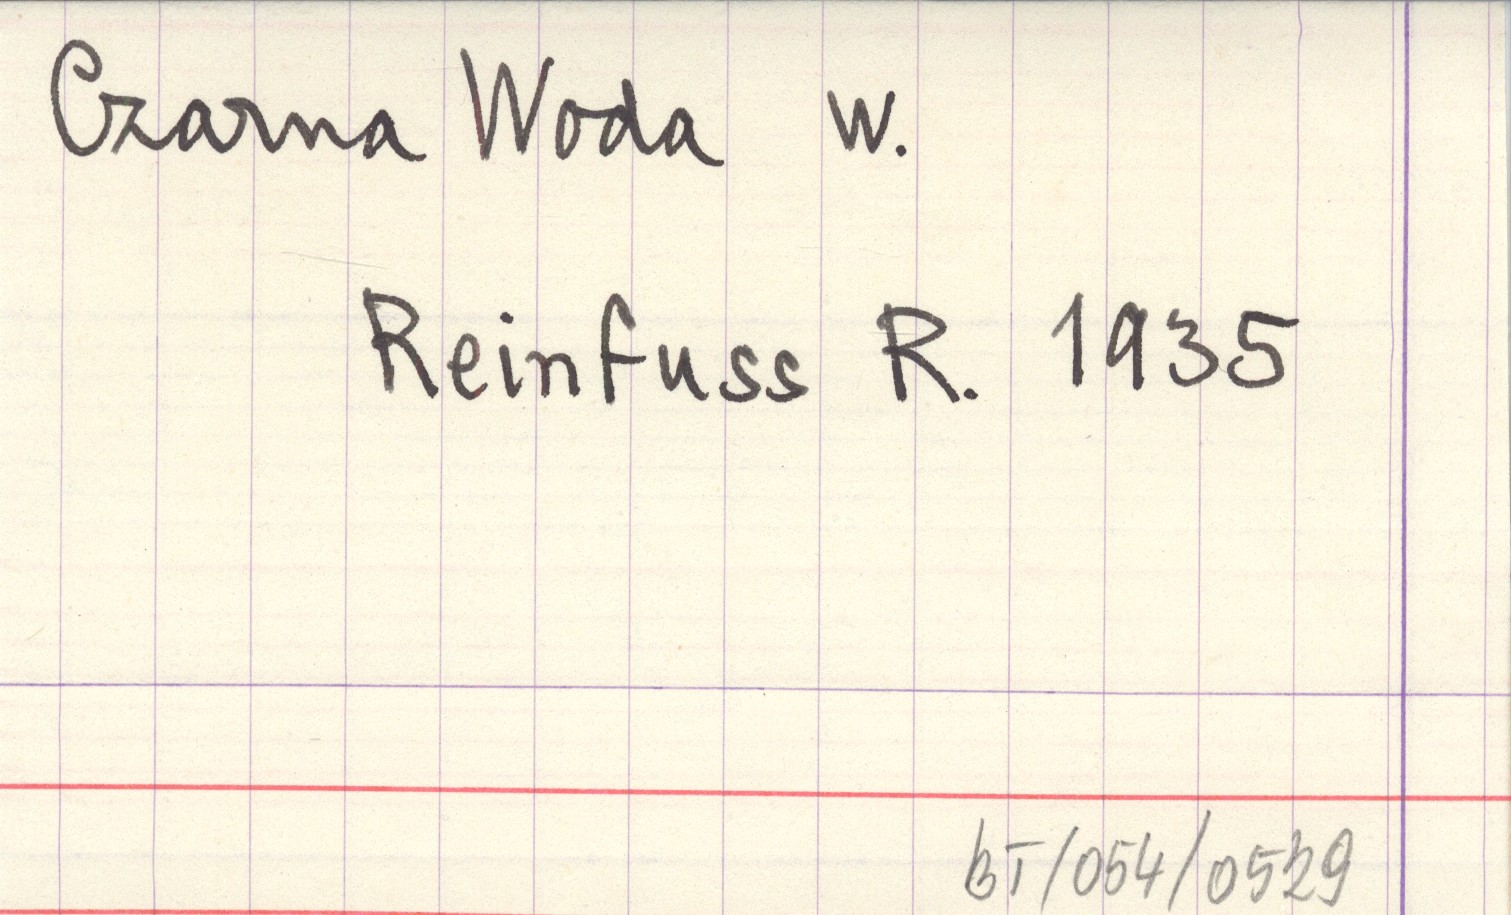 Czarna Woda w.
Reinfuss R. 1935
BT/054/0529